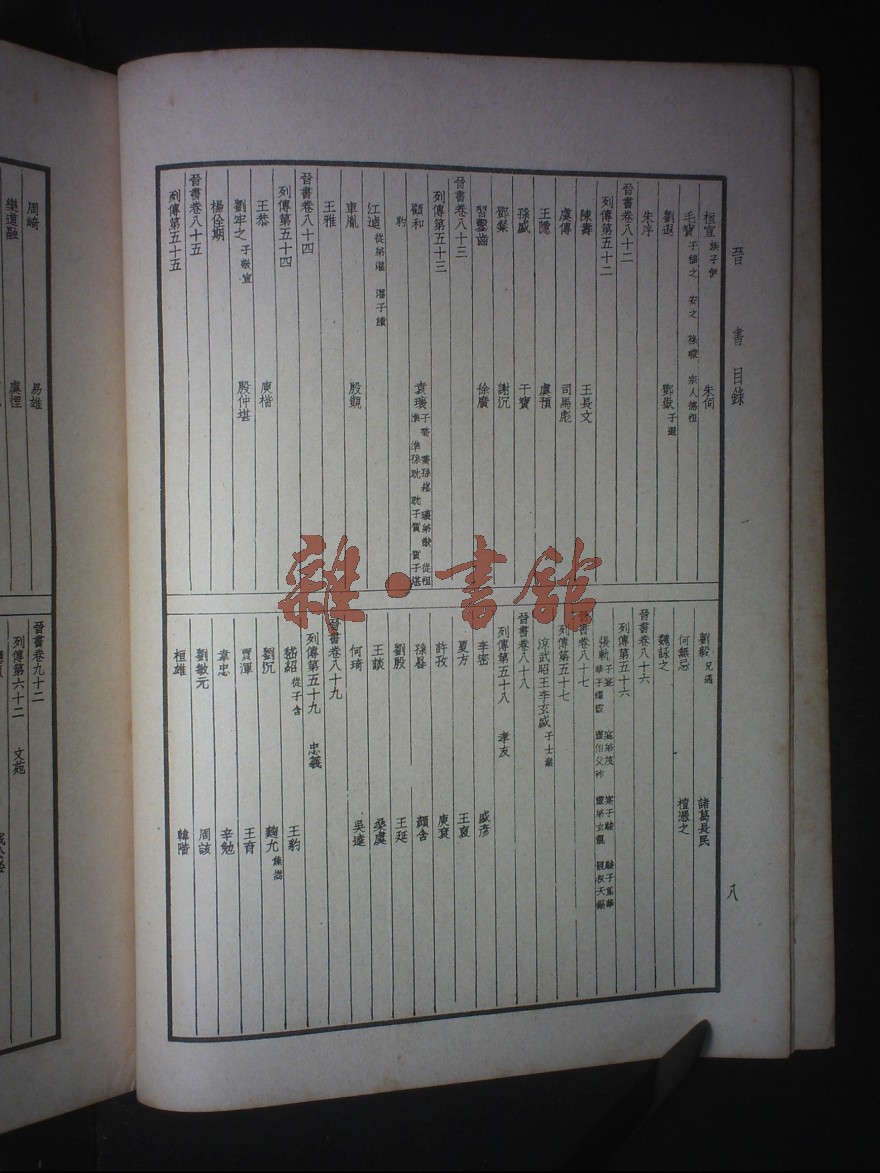 晉書目錄
八
桓宣 族子伊 朱伺
毛寶 子穆之 安之 孫璩 宗人德祖
劉遐 鄧嶽 子遐
朱序
晉書卷八十二
列傳第五十二
陳壽 王長文
虞溥 司馬彪
王隱 虞預
孫盛 干寶
鄧粲 謝沉
習鑿齒 徐廣
晉書卷八十三
列傳第五十三
顧和 袁瓌 子喬 喬孫山松 瓌弟猷 從祖準 準孫耽 耽子質 質子湛
豹
江逌 從弟灌 灌子績
車胤 殷顗
王雅
晉書卷八十四
列傳第五十四
王恭 庾楷
劉牢之 子敬宣 殷仲堪
楊佺期
晉書卷八十五
列傳第五十五
劉毅 兄邁 諸葛長民
何無忌 檀憑之
魏詠之
晉書卷八十六
列傳第五十六
張軌 子寔 寔弟茂 寔子駿 駿子重華 華子耀靈 靈伯父祚 靈弟玄靚 靚叔天錫
晉書卷八十七
列傳第五十七
涼武昭王李玄盛 子士業
晉書卷八十八
列傳第五十八 孝友
李密 盛彥
夏方 王裒
許孜 庾袞
孫晷 顏含
劉殷 王延
王談 桑虞
何琦 吳逵
晉書卷八十九
列傳第五十九 忠義
嵇紹 從子含 王豹
劉沉 麴允 焦嵩
賈渾 王育
韋忠 辛勉
劉敏元 周該
桓雄 韓階
周崎 易雄
樂道融 虞悝
晉書卷九十二
列傳第六十二 文苑
雜·書館